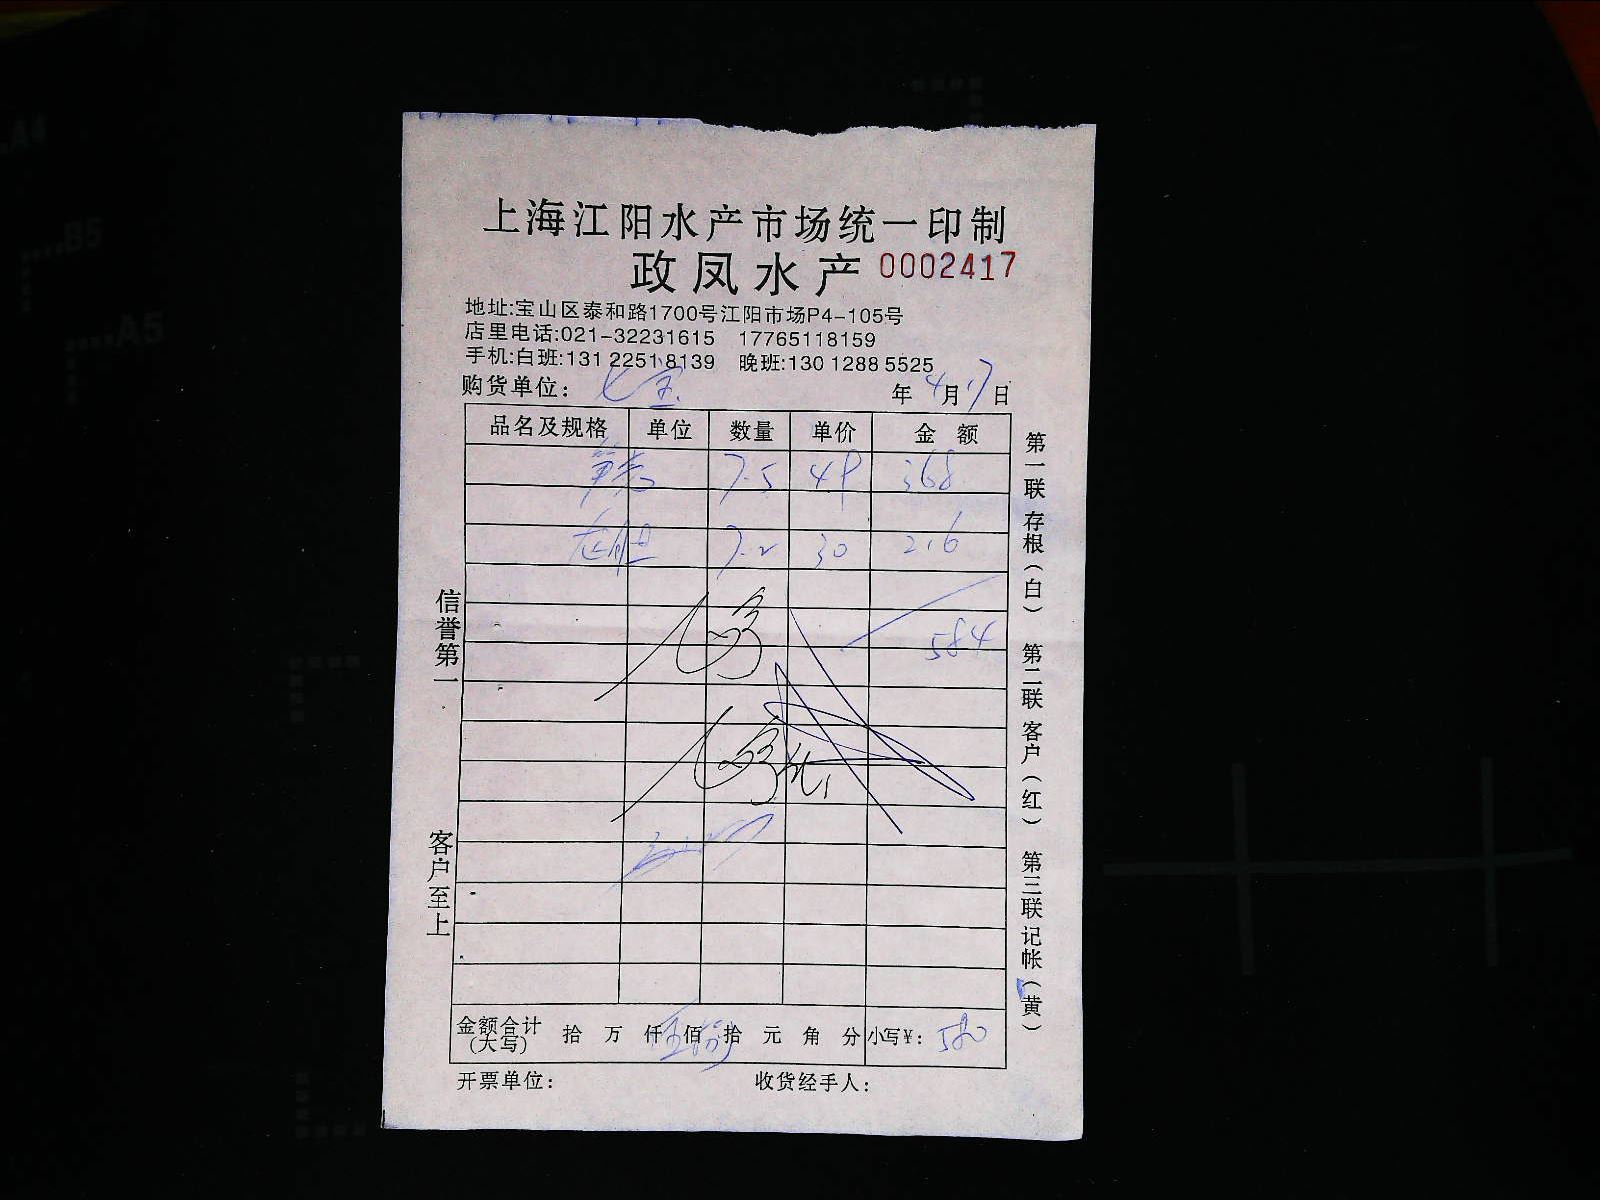 上海江阳水产市场统一印制
政凤水产 0002417
地址:宝山区泰和路1700号江阳市场P4-105号
店里电话:021-32231615 17765118159
手机:白班:131 2251 8139 晚班:130 1288 5525
购货单位: 七宝 年 4 月 17 日
品名及规格 单位 数量 单价 金额
7.5 49 368
7.2 30 216
584
金额合计(大写) 拾 万 仟 佰 拾 元 角 分 小写¥: 580
开票单位: 收货经手人:
信誉第一
客户至上
第一联 存根(白) 第二联 客户(红) 第三联 记帐(黄)